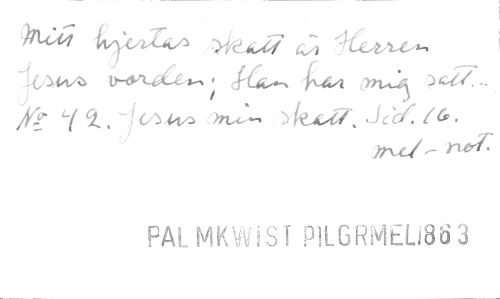 Mitt hjertas skatt är Herren
Jesus vorden; Han har mig satt...
No 42. Jesus min skatt. Sid. 16.
mel-not.
PALMKWIST PILGRMEL1863